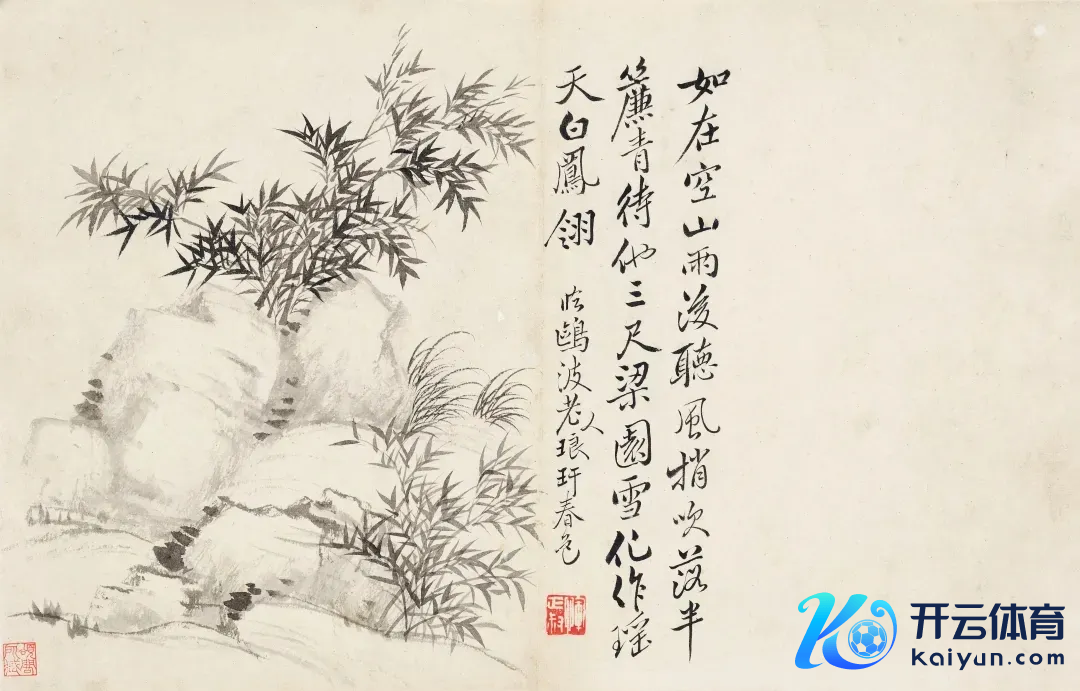 如在空山雨後聽風捎吹落半
簾青待他三尺梁園雪化作瑶
天白鳳翎
临鷗波老人琅玕春色
惲
正叔
开云体育
kaiyun.com